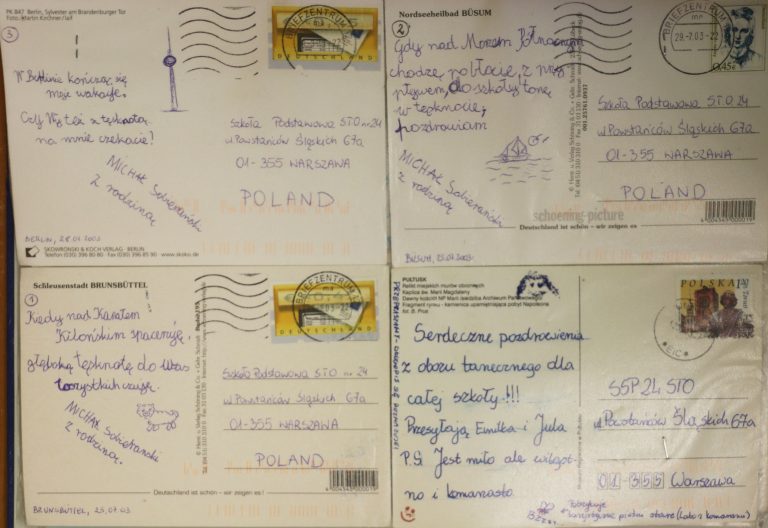 PK 847 Berlin, Sylvester am Brandenburger Tor
Foto: Martin Kirchner/laif
3
BRIEFZENTRUM
DEUTSCHLAND
W Berlinie kończąc się
moje wakacje,
Czy Wy też z tęsknotą
na mnie czekacie?
MICHAŁ Sobierański
z rodziną
Szkoła Podstawowa STO nr 24
ul. Powstańców Śląskich 67a
01-355 WARSZAWA
POLAND
BERLIN, 28.07.2003
SKOWRONSKI & KOCH VERLAG · BERLIN
Telefon (030) 396 80 80 · Fax (030) 396 85 90 · www.skoko.de
Nordseeheilbad BÜSUM
2
BRIEFZENTRUM
mn
29.-7.03-22
0,45€
Gdy nad Morzem Północnym
chodzę po błocie, z nią
pływam, do szkoły tonę
w tęsknocie,
pozdrawiam
MICHAŁ Sobierański
z rodziną
Szkoła Podstawowa STO 24
ul. Powstańców Śląskich 67a
01-355 WARSZAWA
POLAND
schoening-picture
Deutschland ist schön – wir zeigen es
BÜSUM, 25.07.2003
Schleusenstadt BRUNSBÜTTEL
1
BRIEFZENTRUM
mn
DEUTSCHLAND
Kiedy nad Kanałem
Kilońskim spaceruję,
głęboką tęsknotę do Was
wszystkich czuję.
MICHAŁ Sobierański
z rodziną.
Szkoła Podstawowa STO nr 24
ul. Powstańców Śląskich 67a
01-355 WARSZAWA
POLAND
Deutschland ist schön - wir zeigen es!
BRUNSBÜTTEL, 25.07.03
PUŁTUSK
Relikt miejskich murów obronnych
Kaplica św. Marii Magdaleny
Fragment rynku - kamienica upamiętniająca pobyt Napoleona
fot. B. Proć
POLSKA 1,20 zł
PRZEPRASZAMY - DŁUGOPIS SIĘ ROZMAZUJE!
Serdeczne pozdrowienia
z obozu tanecznego dla
całej szkoły!!!
Przesyłają Emilka i Jula
P.S. Jest miło ale wilgot-
no i komarzasto.
SSP 24 STO
ul. Powstańców Śląskich 67a
01-355 Warszawa